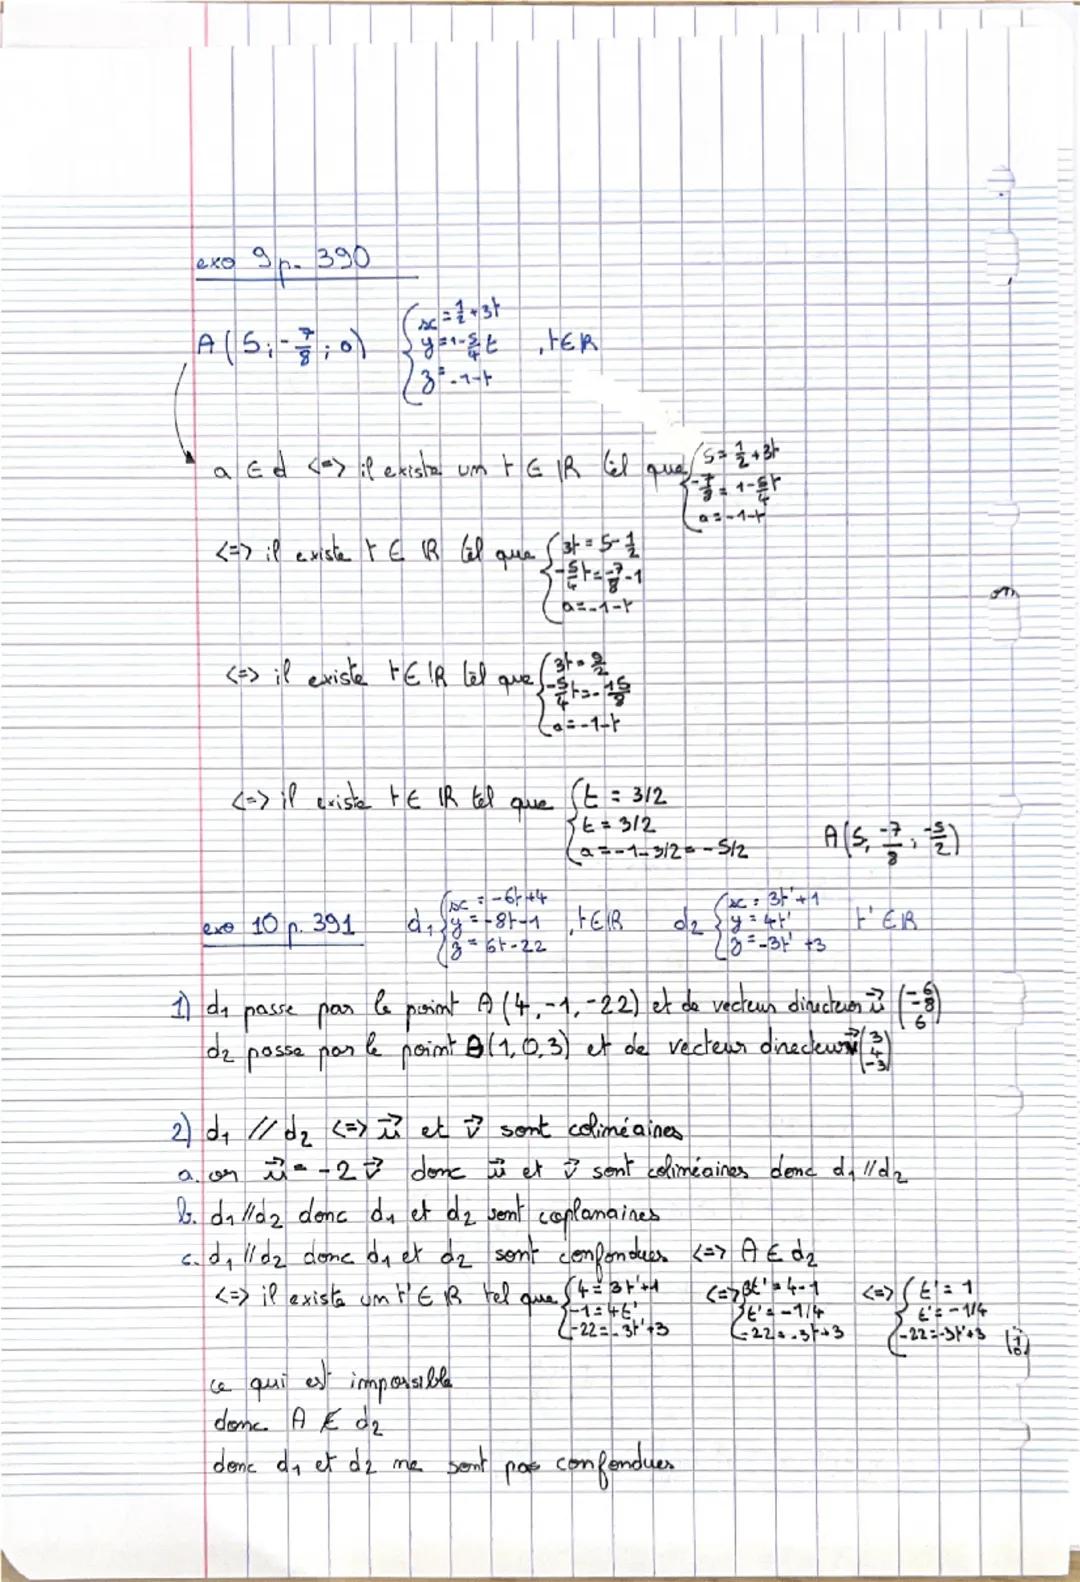 exo 9 p. 390
A(5; -7/8; a) { x = 1/2 + 3t
y = 1 - 5/4 t , t ∈ ℝ
z = -1 - t
a ∈ d <=> il existe un t ∈ ℝ tel que { 5 = 1/2 + 3t
-7/8 = 1 - 5/4 t
a = -1 - t
<=> il existe t ∈ ℝ tel que { 3t = 5 - 1/2
-5/4 t = -7/8 - 1
a = -1 - t
<=> il existe t ∈ ℝ tel que { 3t = 9/2
-5/4 t = -15/8
a = -1 - t
<=> il existe t ∈ ℝ tel que { t = 3/2
t = 3/2
a = -1 - 3/2 = -5/2 A(5, -7/8, -5/2)
exo 10 p. 391 d₁ { x = -6t + 4
y = -8t - 1 , t ∈ ℝ
z = 6t - 22
d₂ { x = 3t' + 1
y = 4t' t' ∈ ℝ
z = -3t' + 3
1) d₁ passe par le point A (4, -1, -22) et de vecteur directeur u⃗ (-6 -8 6)
d₂ passe par le point B(1, 0, 3) et de vecteur directeur v⃗ (3 4 -3)
2) d₁ // d₂ <=> u⃗ et v⃗ sont colinéaires
a. or u⃗ = -2 v⃗ donc u⃗ et v⃗ sont colinéaires donc d₁ // d₂
b. d₁ // d₂ donc d₁ et d₂ sont coplanaires
c. d₁ // d₂ donc d₁ et d₂ sont confondues <=> A ∈ d₂
<=> il existe un t' ∈ ℝ tel que { 4 = 3t' + 1
-1 = 4t'
-22 = -3t' + 3
<=> { 3t' = 4 - 1
t' = -1/4
-22 = -3t + 3
<=> { t' = 1
t' = -1/4
-22 = -3t' + 3
ce qui est impossible
donc A ∉ d₂
donc d₁ et d₂ ne sont pas confondues